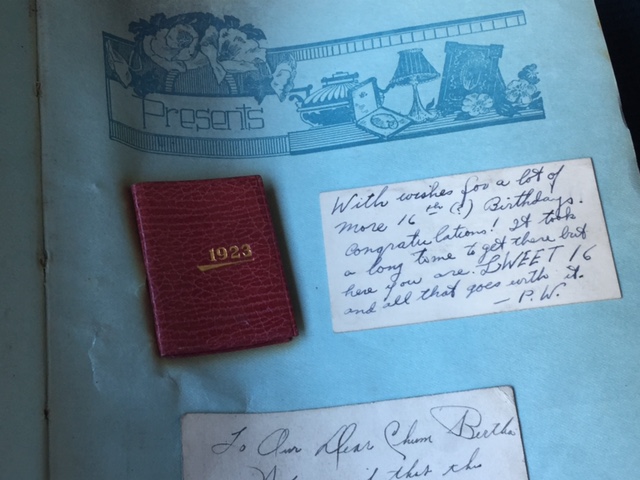 Presents
1923
With wishes for a lot of
more 16th (?) Birthdays.
Congratulations! It took
a long time to get there but
here you are. SWEET 16
and all that goes with it.
— P.W.
To Our Dear Chum Bertha
that this